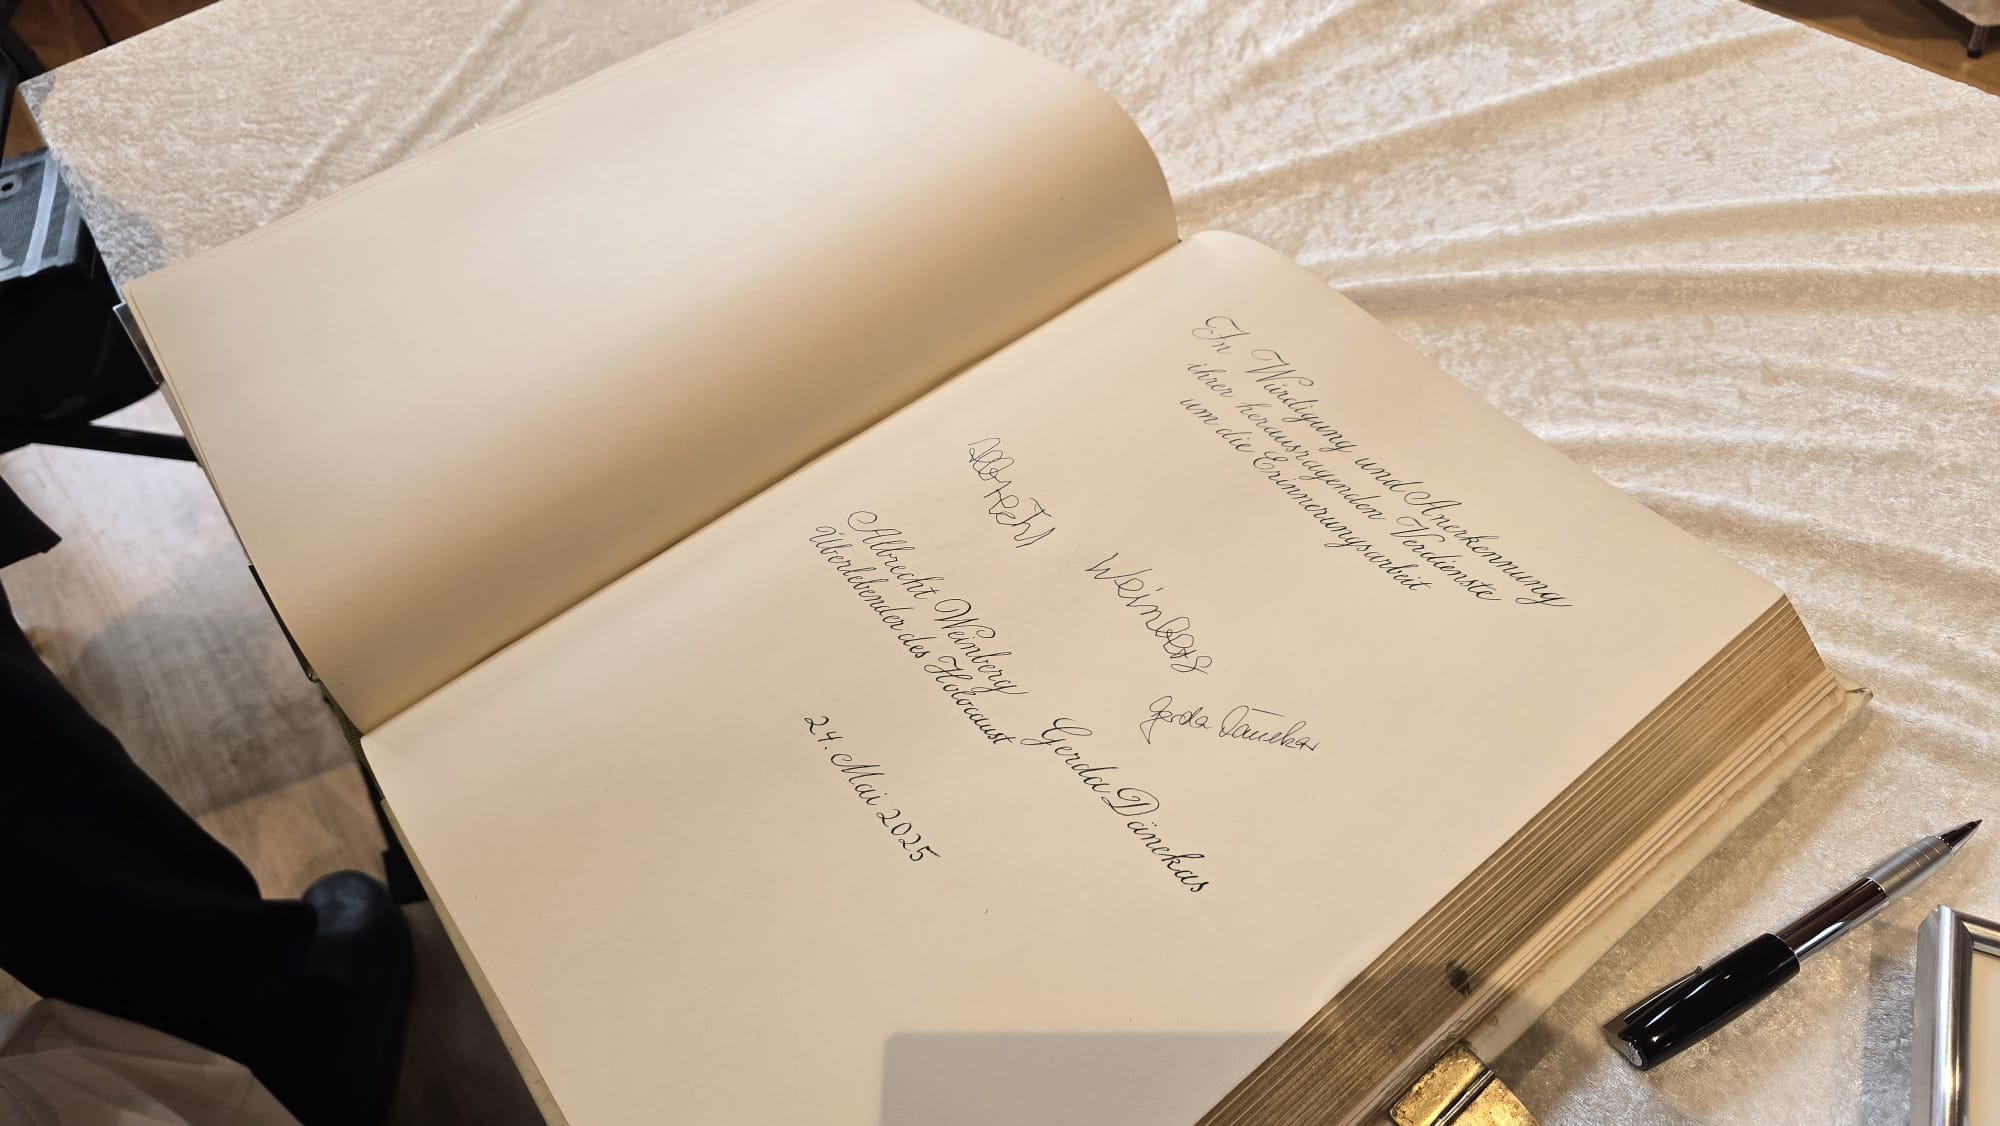 In Würdigung und Anerkennung
ihrer herausragenden Verdienste
um die Erinnerungsarbeit
Albrecht Weinberg
Gerda Dänekas
Albrecht Weinberg
Überlebender des Holocaust
Gerda Dänekas
24. Mai 2025